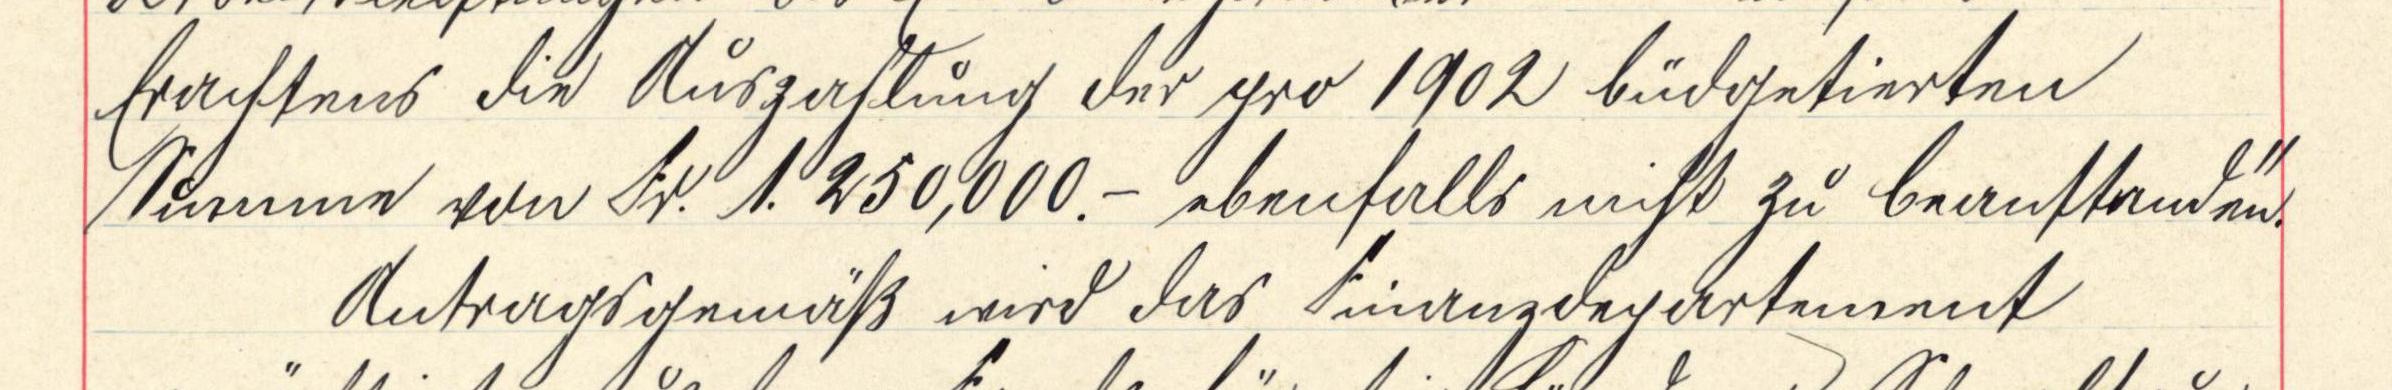 Erachtens die Auszahlung der pro 1902 büdgetierten
Summe von Fr. 1.250,000.- ebenfalls nicht zu beanstanden."
Antragsgemäß wird das Finanzdepartement